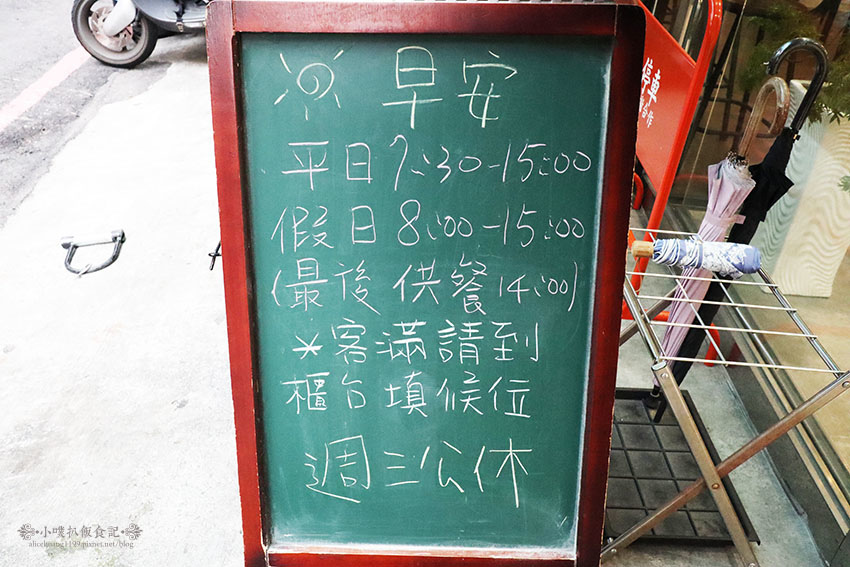 早安
平日 7:30-15:00
假日 8:00-15:00
(最後供餐 14:00)
*客滿請到
櫃台填候位
週三公休
小噗扒飯食記